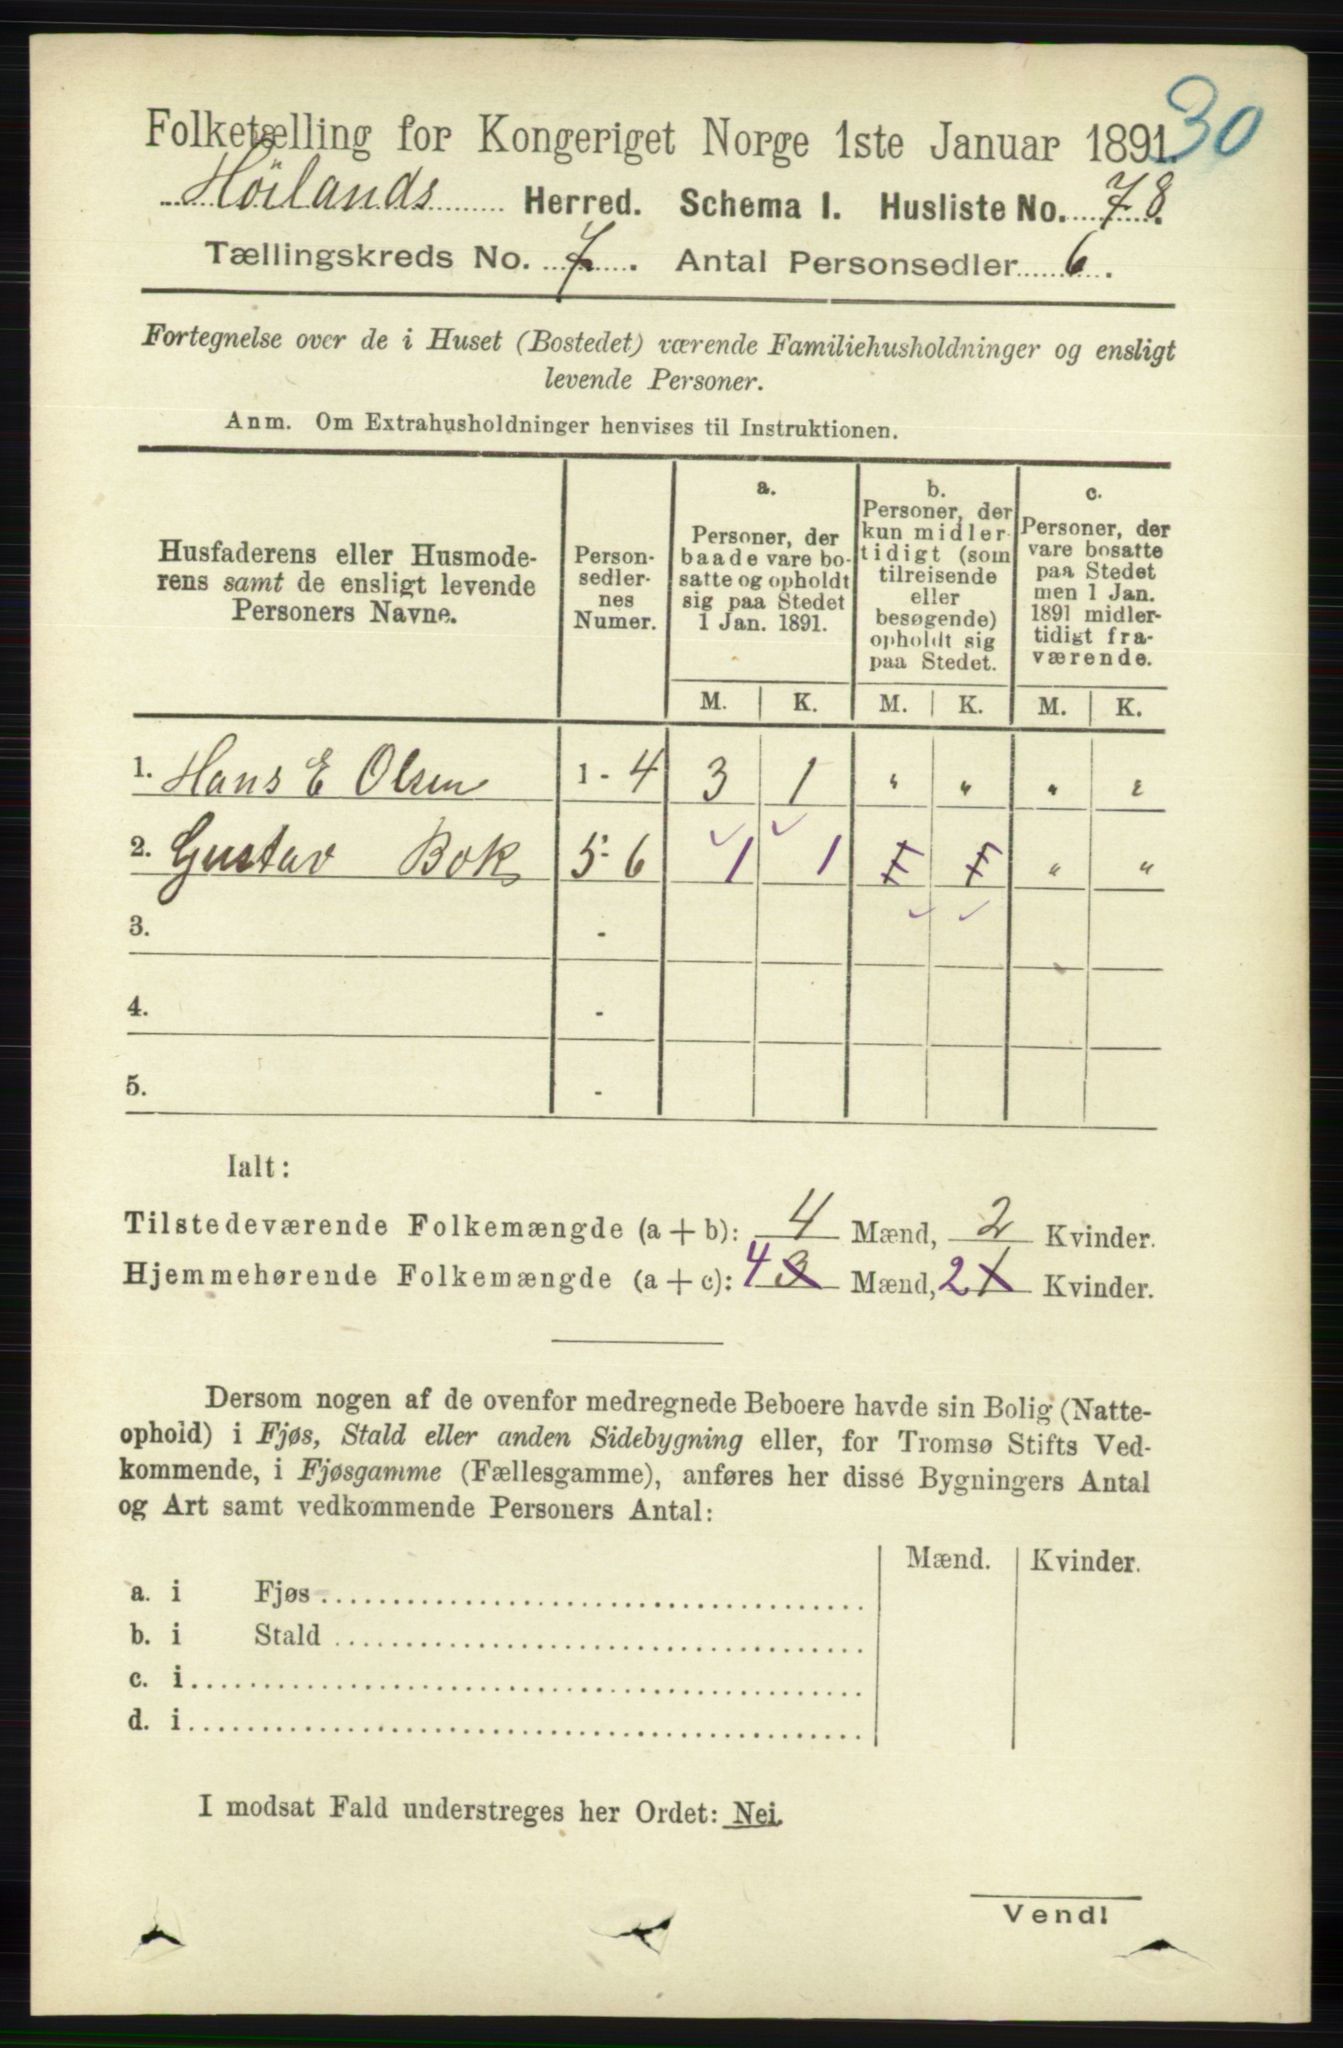 30
Folketælling for Kongeriget Norge 1ste Januar 1891.
Höilands Herred. Schema I. Husliste No. 78.
Tællingskreds No. 7. Antal Personsedler 6.
Fortegnelse over de i Huset (Bostedet) værende Familiehusholdninger og ensligt
levende Personer.
Anm. Om Extrahusholdninger henvises til Instruktionen.
Husfaderens eller Husmode-
rens samt de ensligt levende
Personers Navne.
Person-
sedler-
nes
Numer.
a.
Personer, der
baade vare bo-
satte og opholdt
sig paa Stedet
1 Jan. 1891.
b.
Personer, der
kun midler-
tidigt (som
tilreisende
eller
besøgende)
opholdt sig
paa Stedet.
c.
Personer, der
vare bosatte
paa Stedet
men 1 Jan.
1891 midler-
tidigt fra-
værende.
M. K. M. K. M. K.
1. Hans E Olsen 1 - 4 3 1 " " " "
2. Gustav Bok 5 - 6 1 1 " "
3. -
4. -
5. -
Ialt:
Tilstedeværende Folkemængde (a + b): 4 Mænd, 2 Kvinder.
Hjemmehørende Folkemængde (a + c): 4 3 Mænd, 2 1 Kvinder.
Dersom nogen af de ovenfor medregnede Beboere havde sin Bolig (Natte-
ophold) i Fjøs, Stald eller anden Sidebygning eller, for Tromsø Stifts Ved-
kommende, i Fjøsgamme (Fællesgamme), anføres her disse Bygningers Antal
og Art samt vedkommende Personers Antal:
Mænd. Kvinder.
a. i Fjøs
b. i Stald
c. i
d. i
I modsat Fald understreges her Ordet: Nei.
Vend!